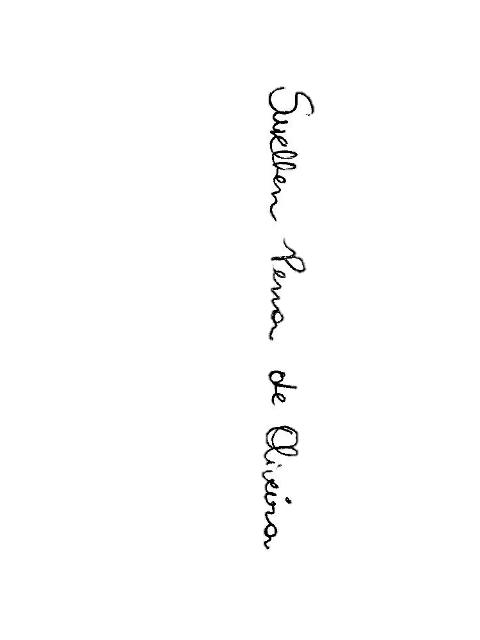 Suellen Penna de Oliveira